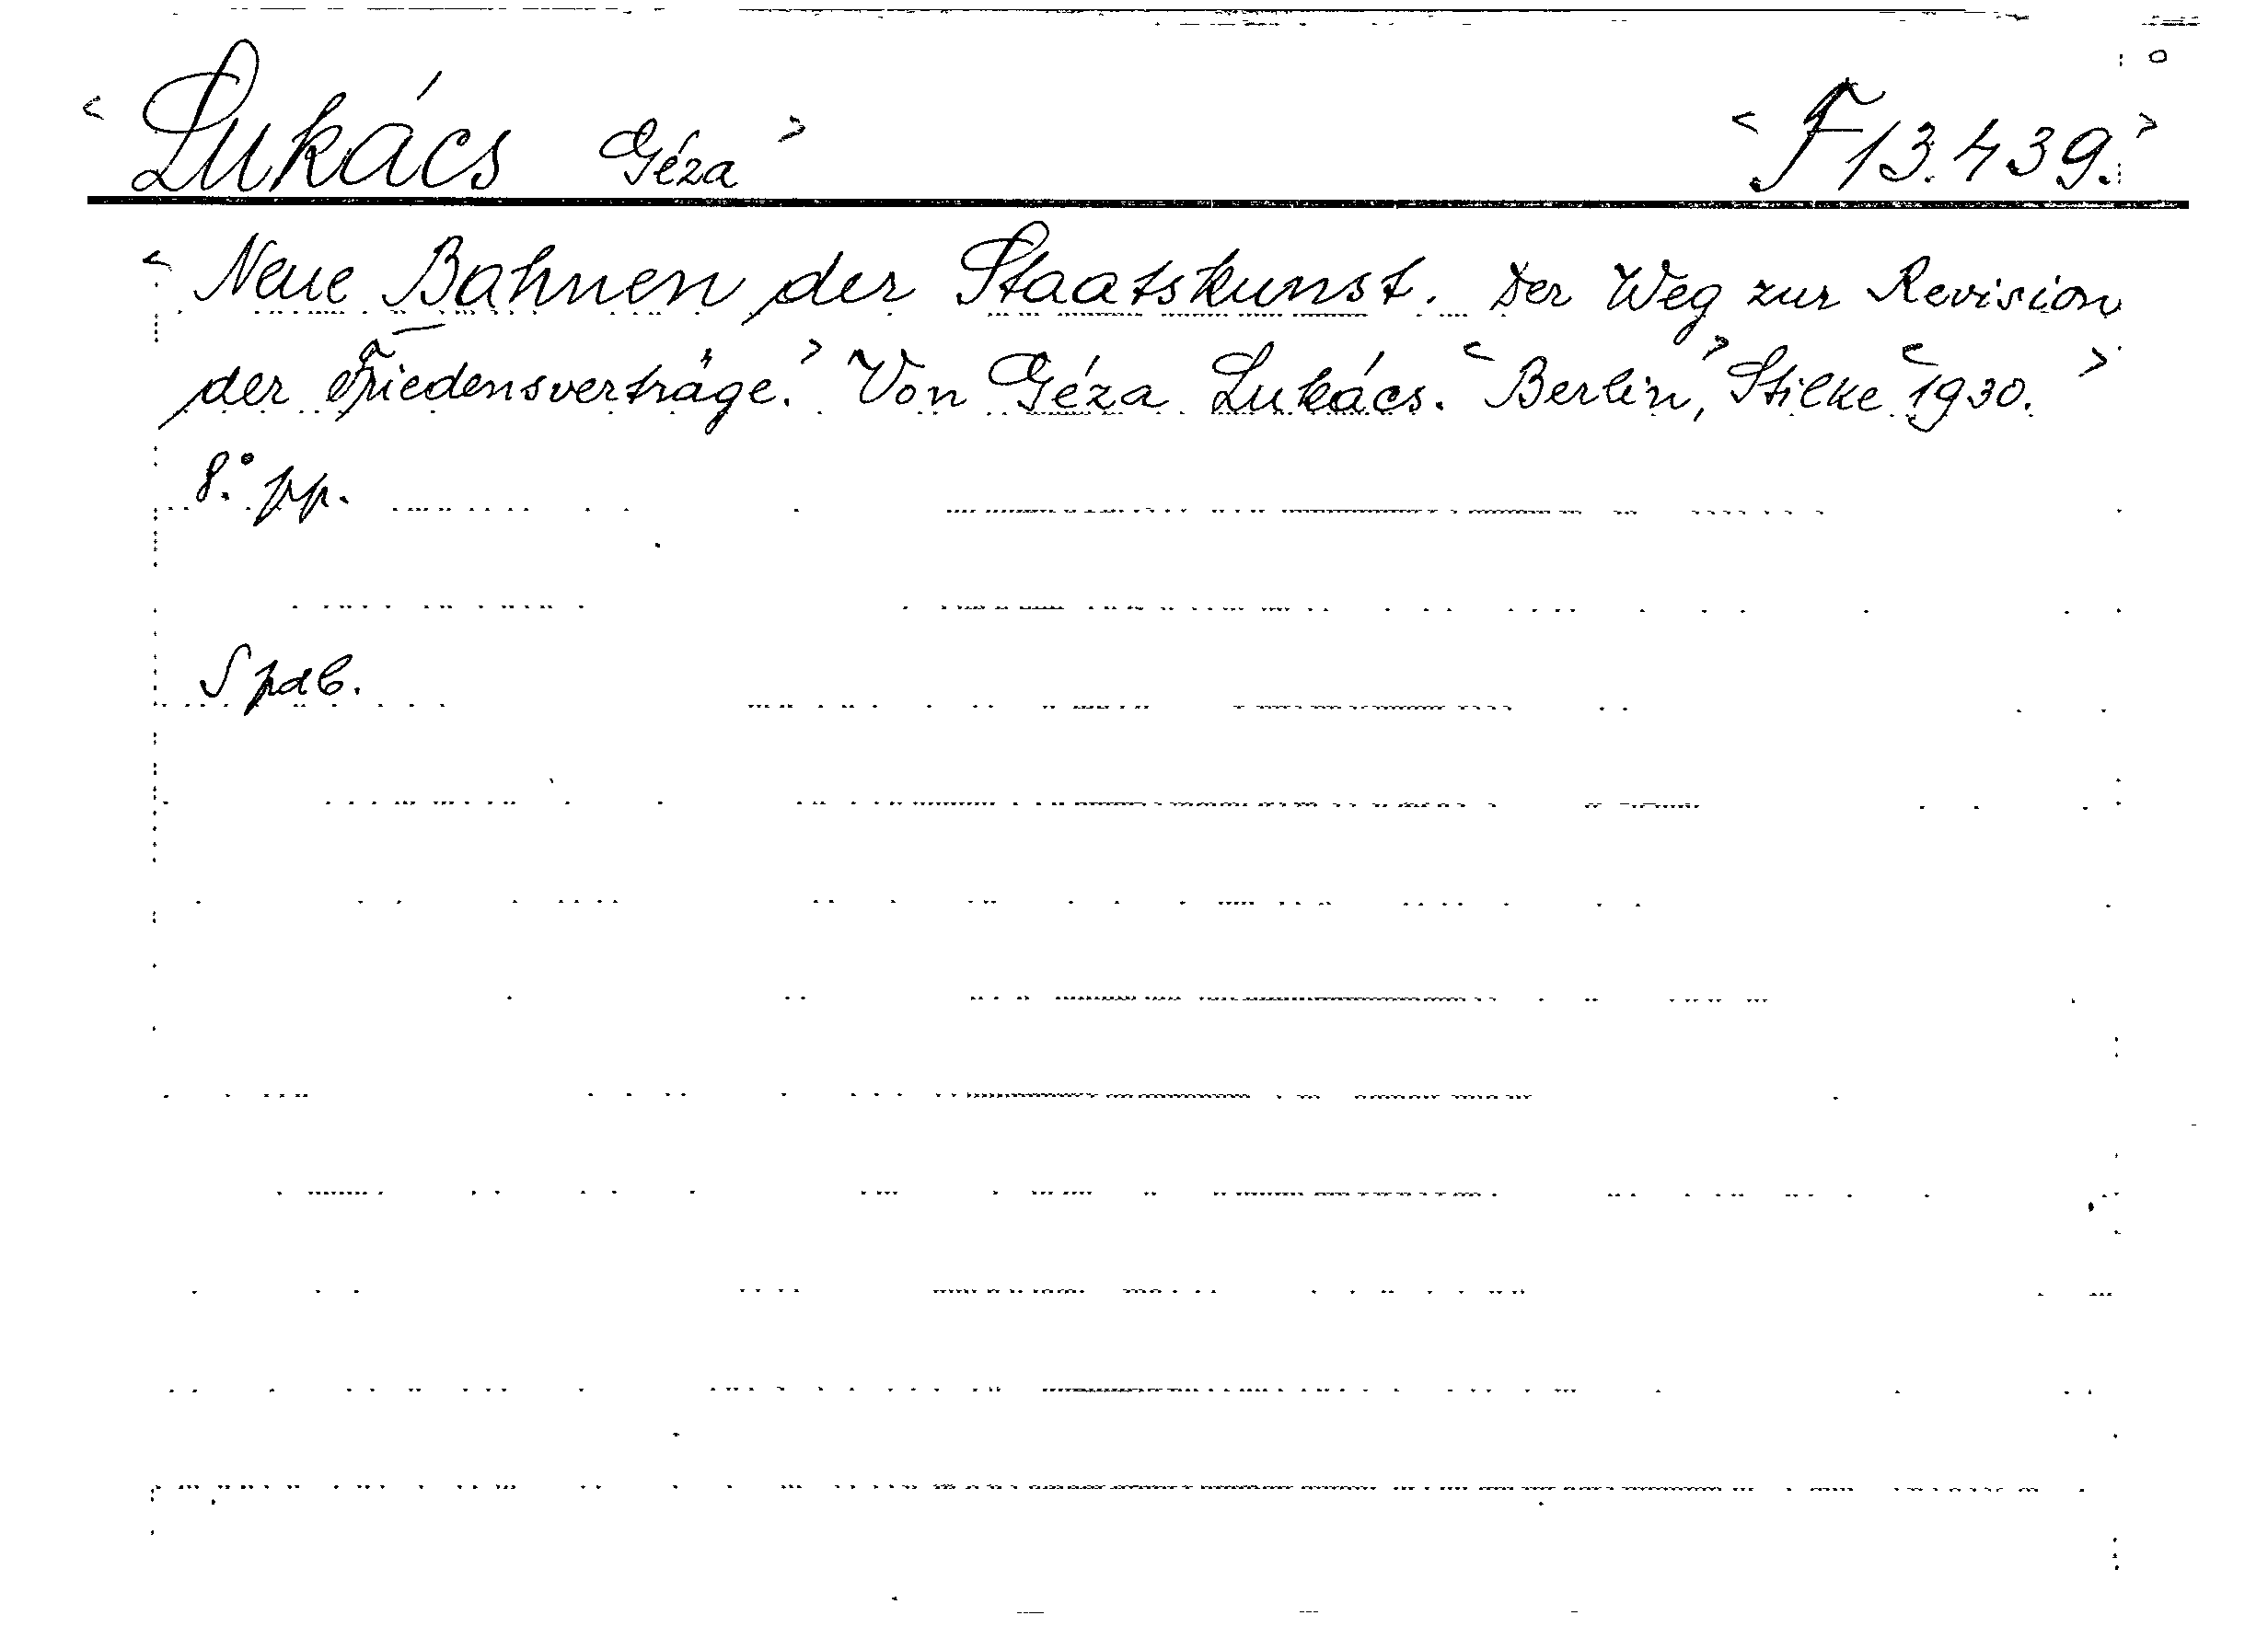 < Lukács Géza > < F 13.439. >
< Neue Bahnen der Staatskunst. Der Weg zur Revision
der Friedensverträge. > Von Géza Lukács. < Berlin, > Stilke < 1930. >
8.° pp.
Spdb.